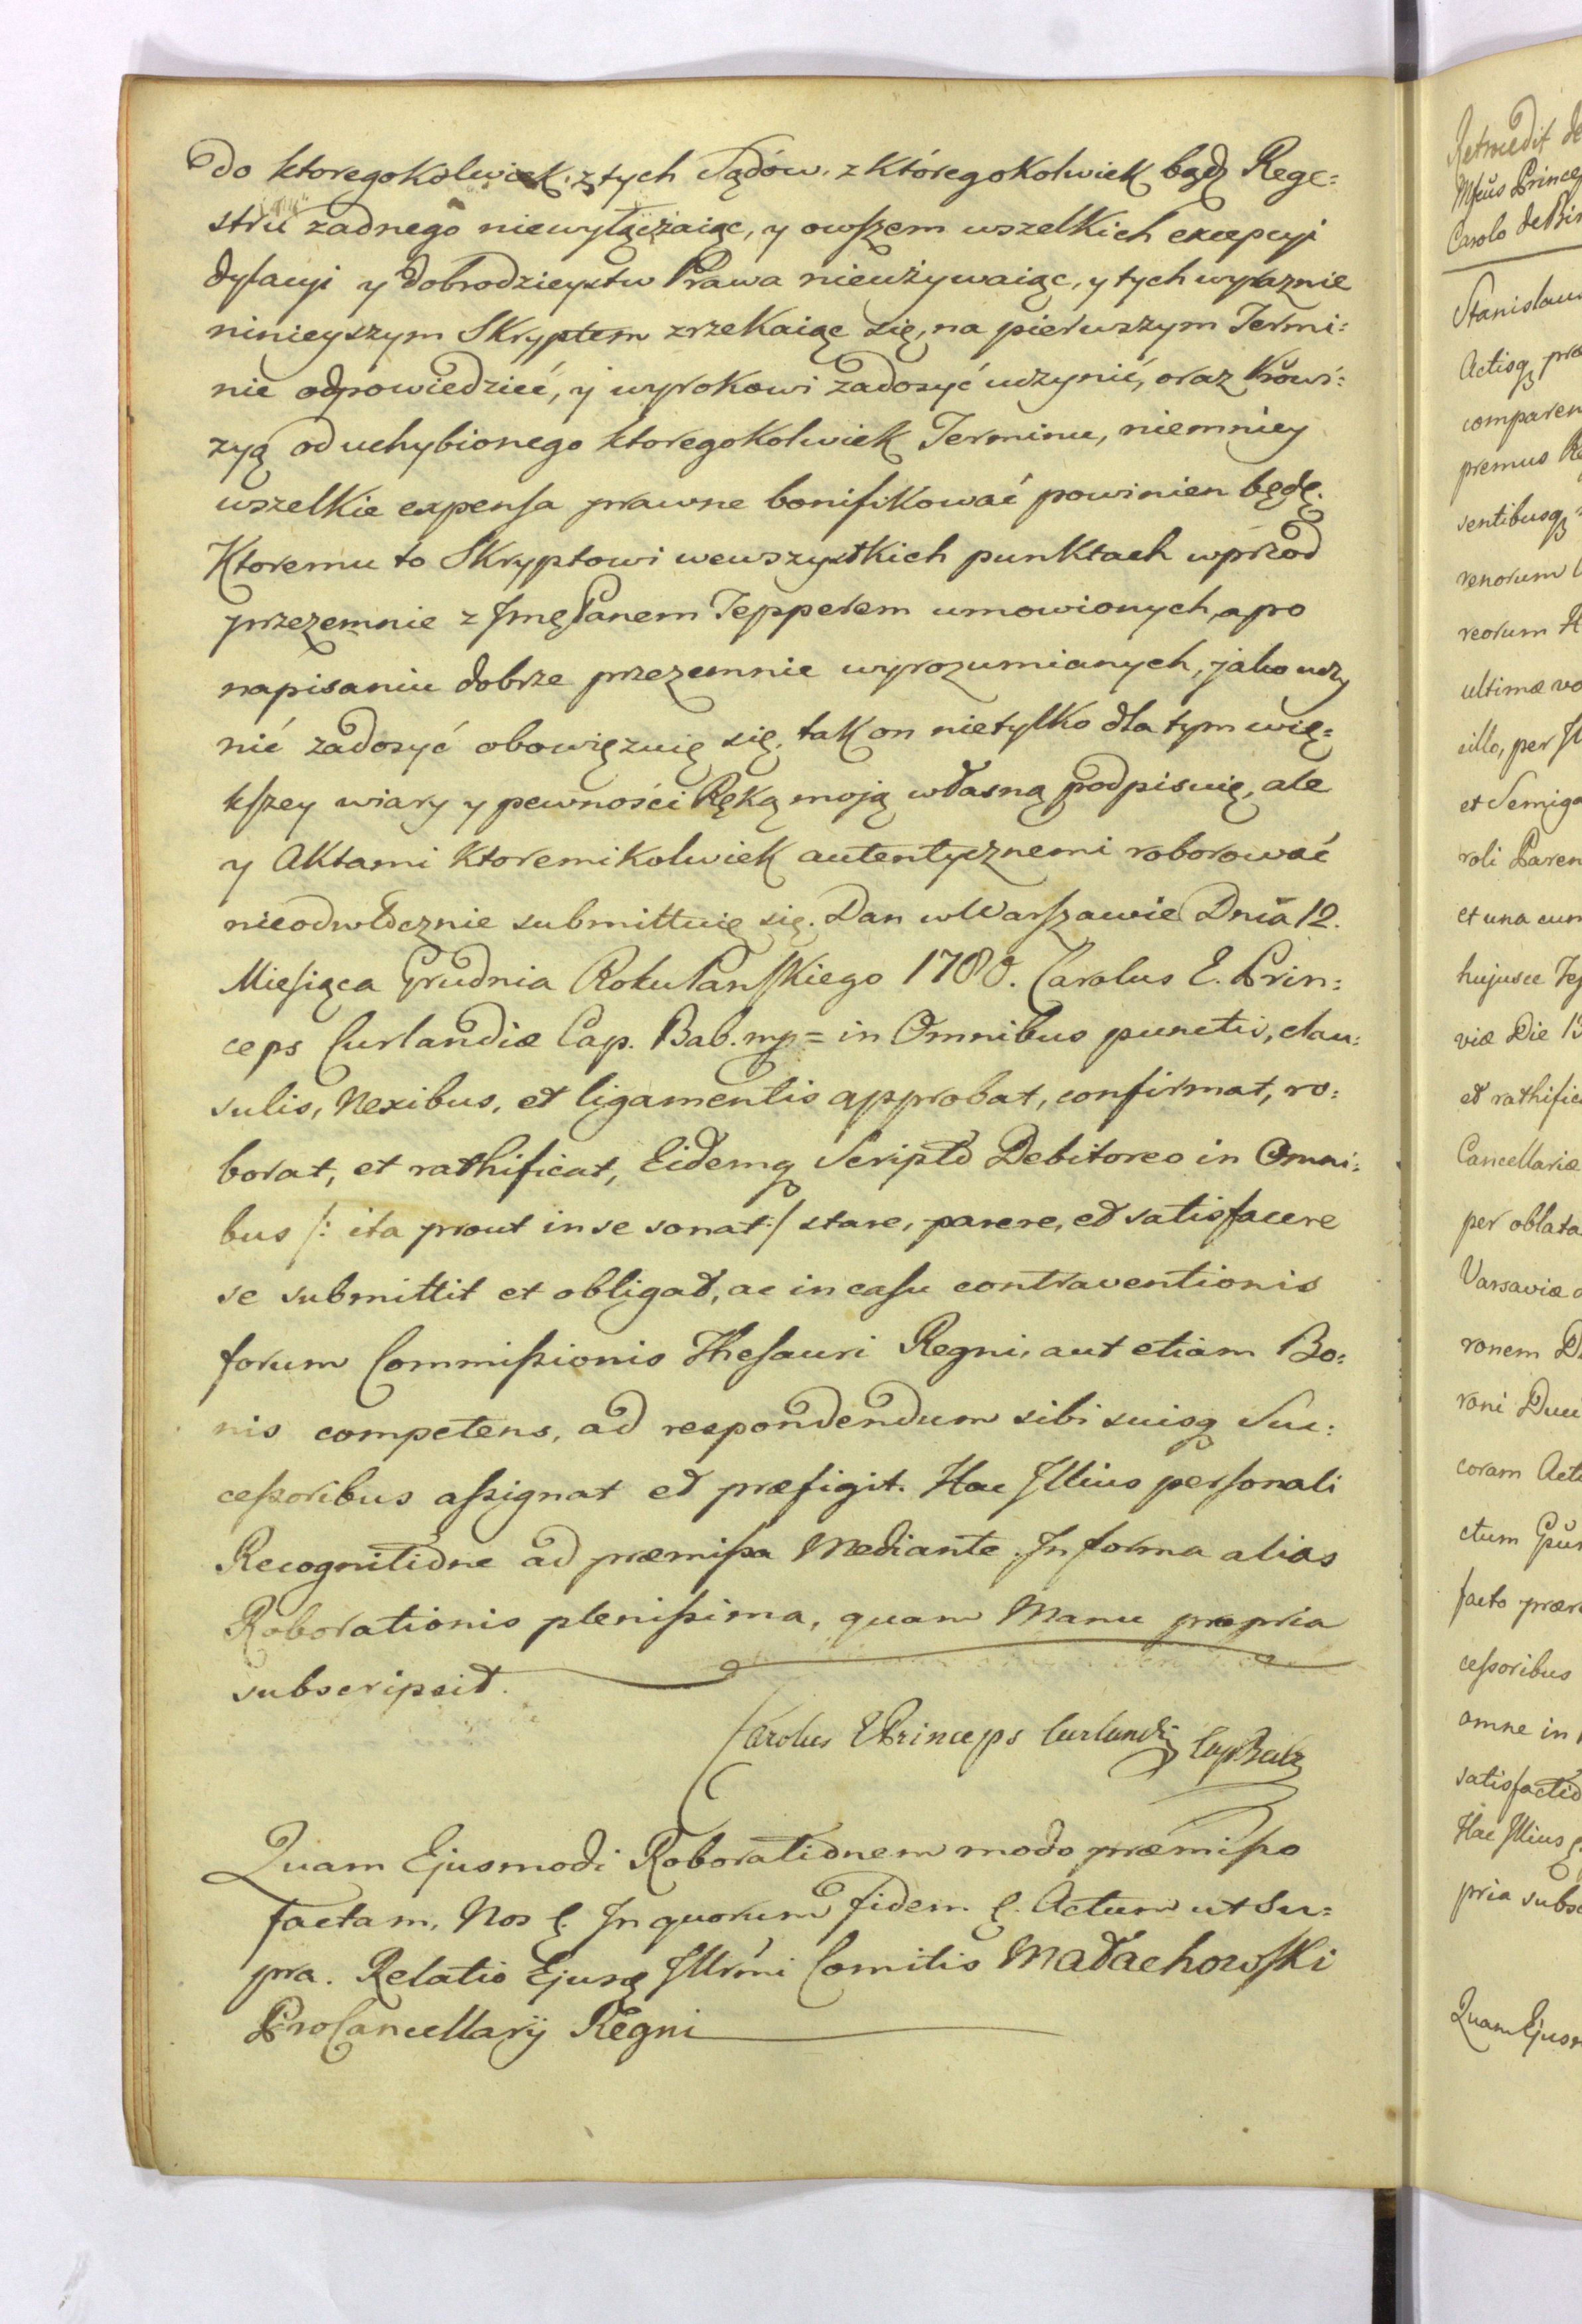 do ktoregokolwiek z tych Sądów, z któregokolwiek bądz Rege:
stru zadnego niewyłączaiąc, y owszem wszelkich excepcyi
dylacyi y dobrodzieystw Prawa nieużywaiąc, y tych wyraznie
ninieyszym Skryptem zrzekaiąc się, na pierwszym Termi:
nie odpowiedzieć, y wyrokowi zadosyć uczynić, oraz Prowi:
zyą od uchybionego ktoregokolwiek Terminu, niemniey
wszelkie expensa prawne bonifikować powinien będę.
Ktoremu to Skryptowi wewszystkich punktach wprzod
przezemnie z Jmę Panem Tepperem umowionych, a po
napisaniu dobrze przezemnie wyrozumianych, jako uczy
nić zadosyć obowięzuię się, tak on nietylko dla tym wię:
kszey wiary y pewności Ręką moją własną podpisuię, ale
y Aktami Ktoremikolwiek autentycznemi roborować
nieodwłocznie submittuię się. Dan w Warszawie Dnia 12.
Miesiąca Grudnia Roku Panskiego 1780. Carolus E. Prin:
ceps Curlandiæ Cap. Bab. mp = in Omnibus punctis, clau:
sulis, Nexibus, et ligamentis approbat, confirmat, ro:
borat, et rathificat, Eidemq Scripto Debitoreo in Omni:
bus /: ita prout in se sonat :/ stare, parere, et satisfacere
se submittit et obligat, ac in casu contraventionis
forum Commissionis Thesauri Regni, aut etiam Bo:
nis competens, ad respondendum sibi suisq Suc:
cessoribus assignat et præfigit. Hac Illius personali
Recognitione ad præmissa Mediante. In forma alias
Roborationis plenissima, quam Manu propria
subscripsit.
Carolus E Princeps Curlandiæ Cap Bab
Quam Ejusmodi Roborationem modo præmisso
factam, Nos &. In quorum fidem &. Actum ut Su:
pra. Relatio Ejusq Illrmi Comitis Małachowski
ProCancellarij Regni
Stanislaus
Actisq præ
comparen
premus
sentibusq
renorum
reorum
ultimæ vo
sillo, per
et Semiga
roli Paren
et una cum
hujusce
viæ Die 13
et rathific
Cancellariæ
per oblata
Varsaviæ
ronem
roni Duc
coram Act
ctum
facto præm
cessoribus
omne in
satisfactio
Hac Illius
pria subsc
Quam Ejusm